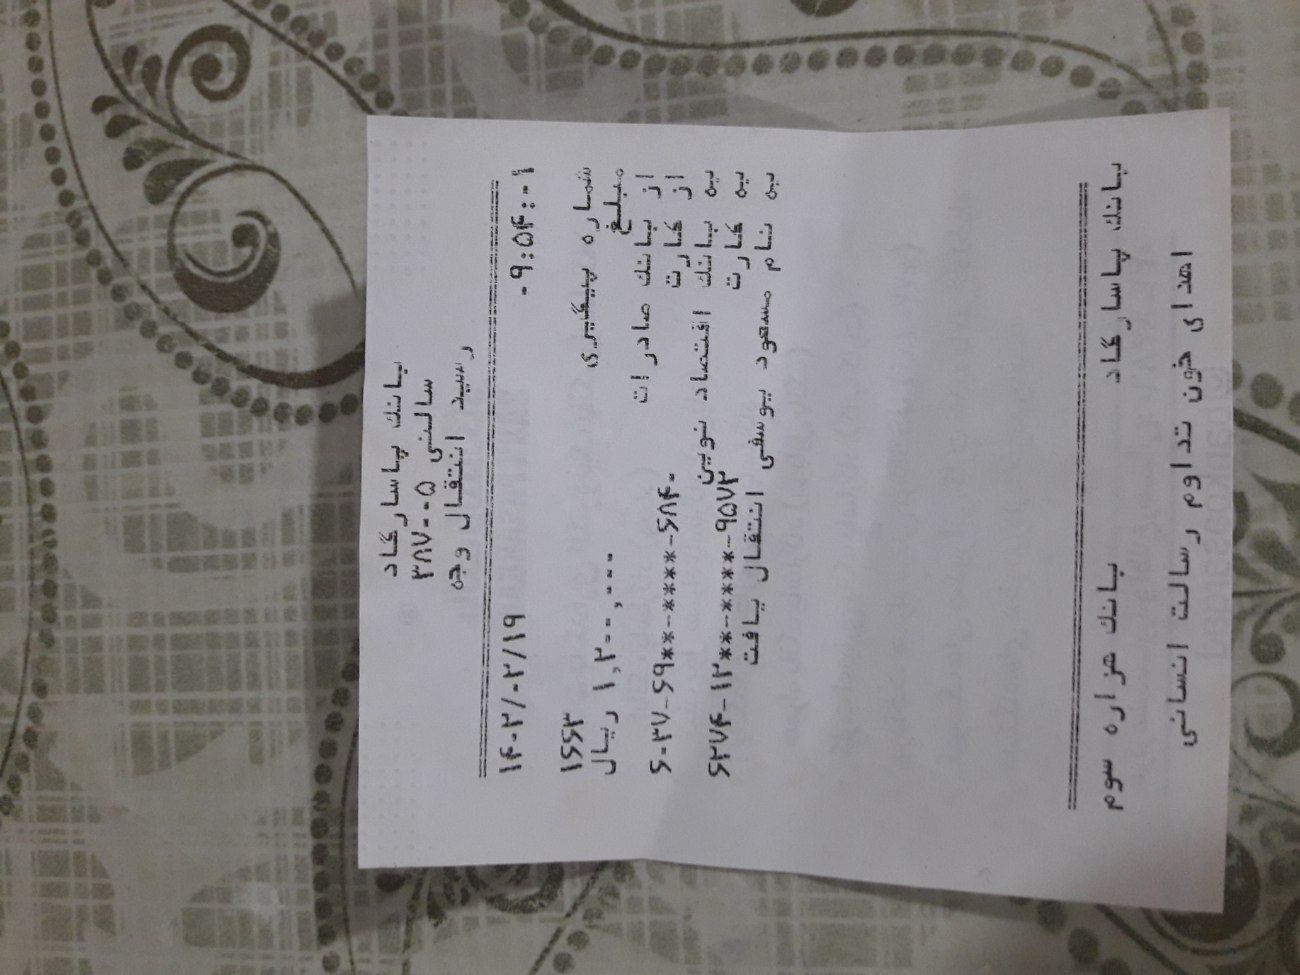 بانك پاسارگاد
سالنی ۳۸۷۰۰۵
رسید انتقال وجه
۱۴۰۲/۰۲/۱۹ ۰۹:۵۴:۰۱
شماره پیگیری ۱۶۶۳
مبلغ ۱,۲۰۰,۰۰۰ ریال
از بانك صادرات
از كارت ۶۰۳۷-۶۹**-****-۶۸۴۰
به بانك اقتصاد نوین
به كارت ۶۲۷۴-۱۲**-****-۹۵۷۲
به نام مسعود یوسفی انتقال یافت
بانك پاسارگاد بانك هزاره سوم
اهدای خون تداوم رسالت انسانی